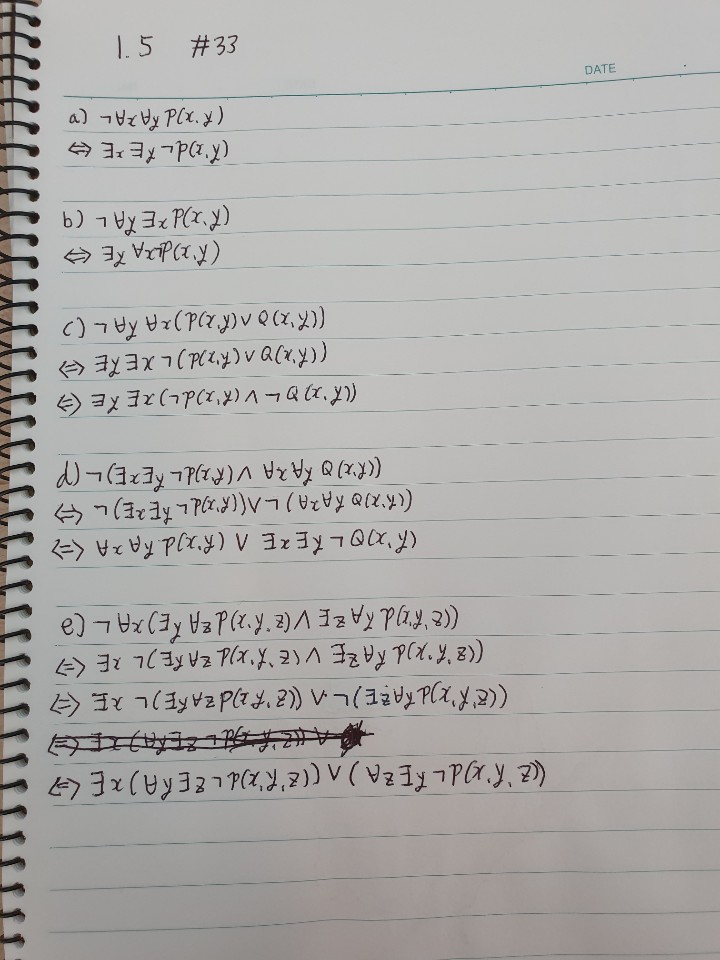 1.5 #33
DATE
a) ¬∀x∀y P(x,y)
⇔ ∃x∃y ¬P(x,y)
b) ¬∀y∃x P(x,y)
⇔ ∃y∀x¬P(x,y)
c) ¬∀y∀x(P(x,y)∨Q(x,y))
⇔ ∃y∃x ¬(P(x,y)∨Q(x,y))
⇔ ∃y∃x(¬P(x,y)∧¬Q(x,y))
d) ¬(∃x∃y¬P(x,y)∧∀x∀y Q(x,y))
⇔ ¬(∃x∃y¬P(x,y))∨¬(∀x∀y Q(x,y))
⇔ ∀x∀y P(x,y)∨∃x∃y¬Q(x,y)
e) ¬∀x(∃y∀z P(x,y,z)∧∃z∀y P(x,y,z))
⇔ ∃x ¬(∃y∀z P(x,y,z)∧∃z∀y P(x,y,z))
⇔ ∃x ¬(∃y∀z P(x,y,z))∨¬(∃z∀y P(x,y,z))
⇔ ∃x(∀y∃z¬P(x,y,z))∨(∀z∃y¬P(x,y,z))